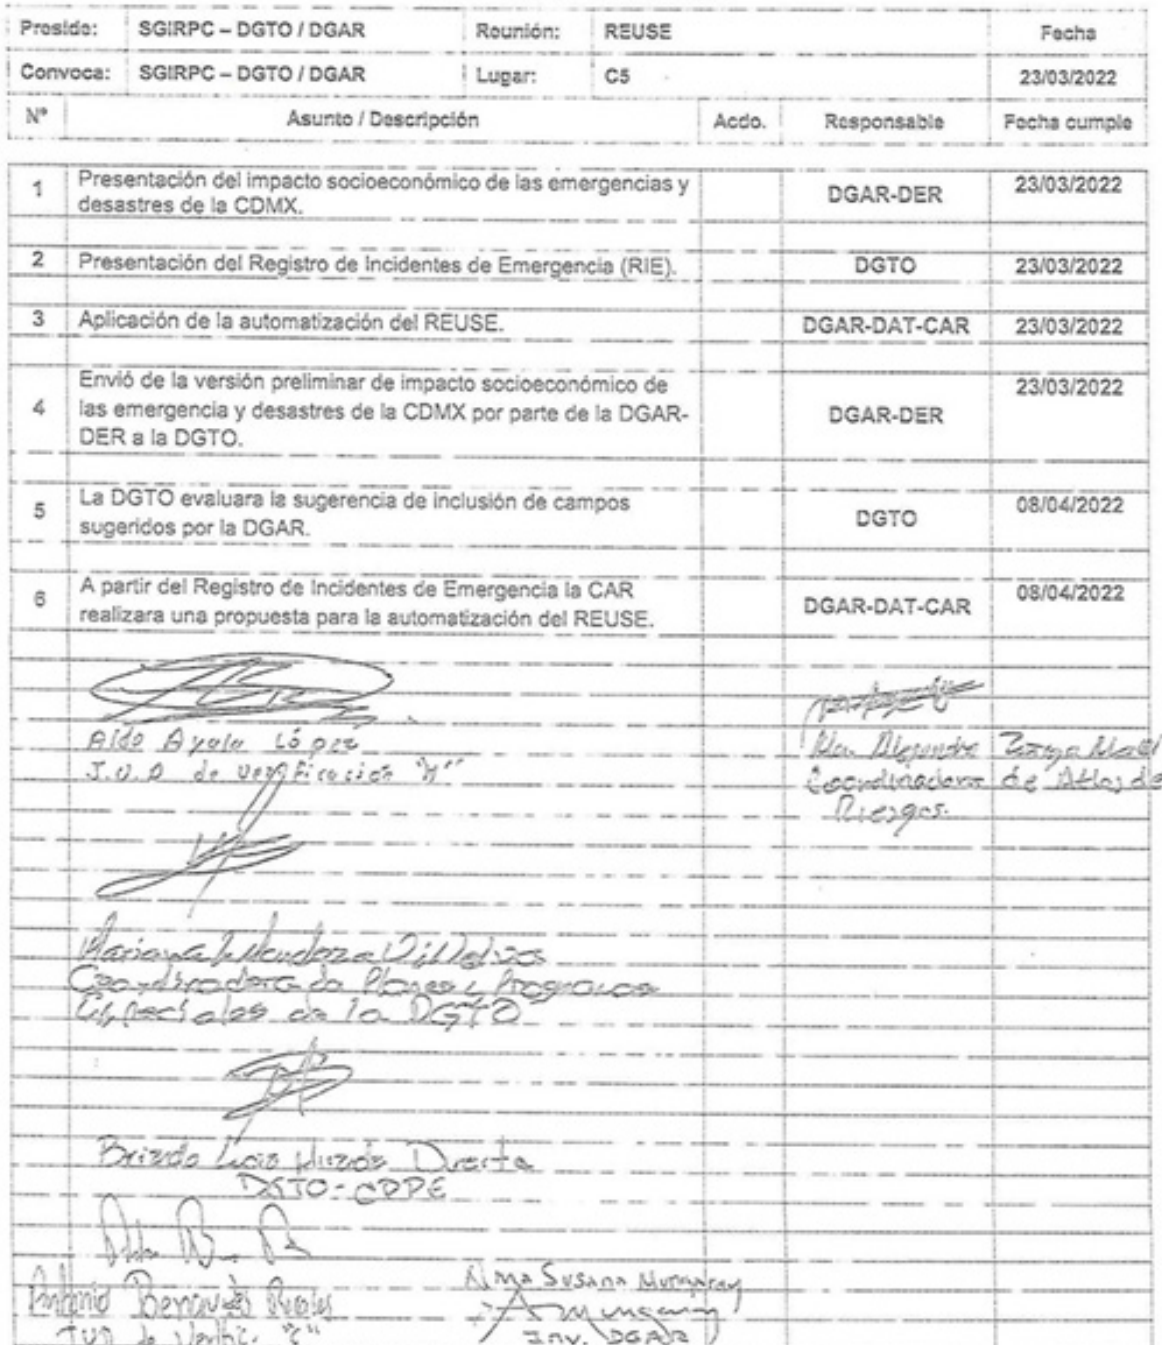 Preside: SGIRPC – DGTO / DGAR Reunión: REUSE Fecha
Convoca: SGIRPC – DGTO / DGAR Lugar: C5 23/03/2022
N° Asunto / Descripción Acdo. Responsable Fecha cumple
1 Presentación del impacto socioeconómico de las emergencias y DGAR-DER 23/03/2022
desastres de la CDMX.
2 Presentación del Registro de Incidentes de Emergencia (RIE). DGTO 23/03/2022
3 Aplicación de la automatización del REUSE. DGAR-DAT-CAR 23/03/2022
Envió de la versión preliminar de impacto socioeconómico de 23/03/2022
4 las emergencia y desastres de la CDMX por parte de la DGAR- DGAR-DER
DER a la DGTO.
5 La DGTO evaluara la sugerencia de inclusión de campos DGTO 08/04/2022
sugeridos por la DGAR.
6 A partir del Registro de Incidentes de Emergencia la CAR DGAR-DAT-CAR 08/04/2022
realizara una propuesta para la automatización del REUSE.
Aldo Ayala López
J.U.D de verificación
Coordinadora de Atlas de
Riesgos.
Mariana Mendoza
Coordinadora de Planes y Programas
Especiales de la DGTO
Duarte
DGTO-CPPE
Antonio Benavides
JUD de Verific. "C"
Alma Susana Mungaray
Inv. DGAR